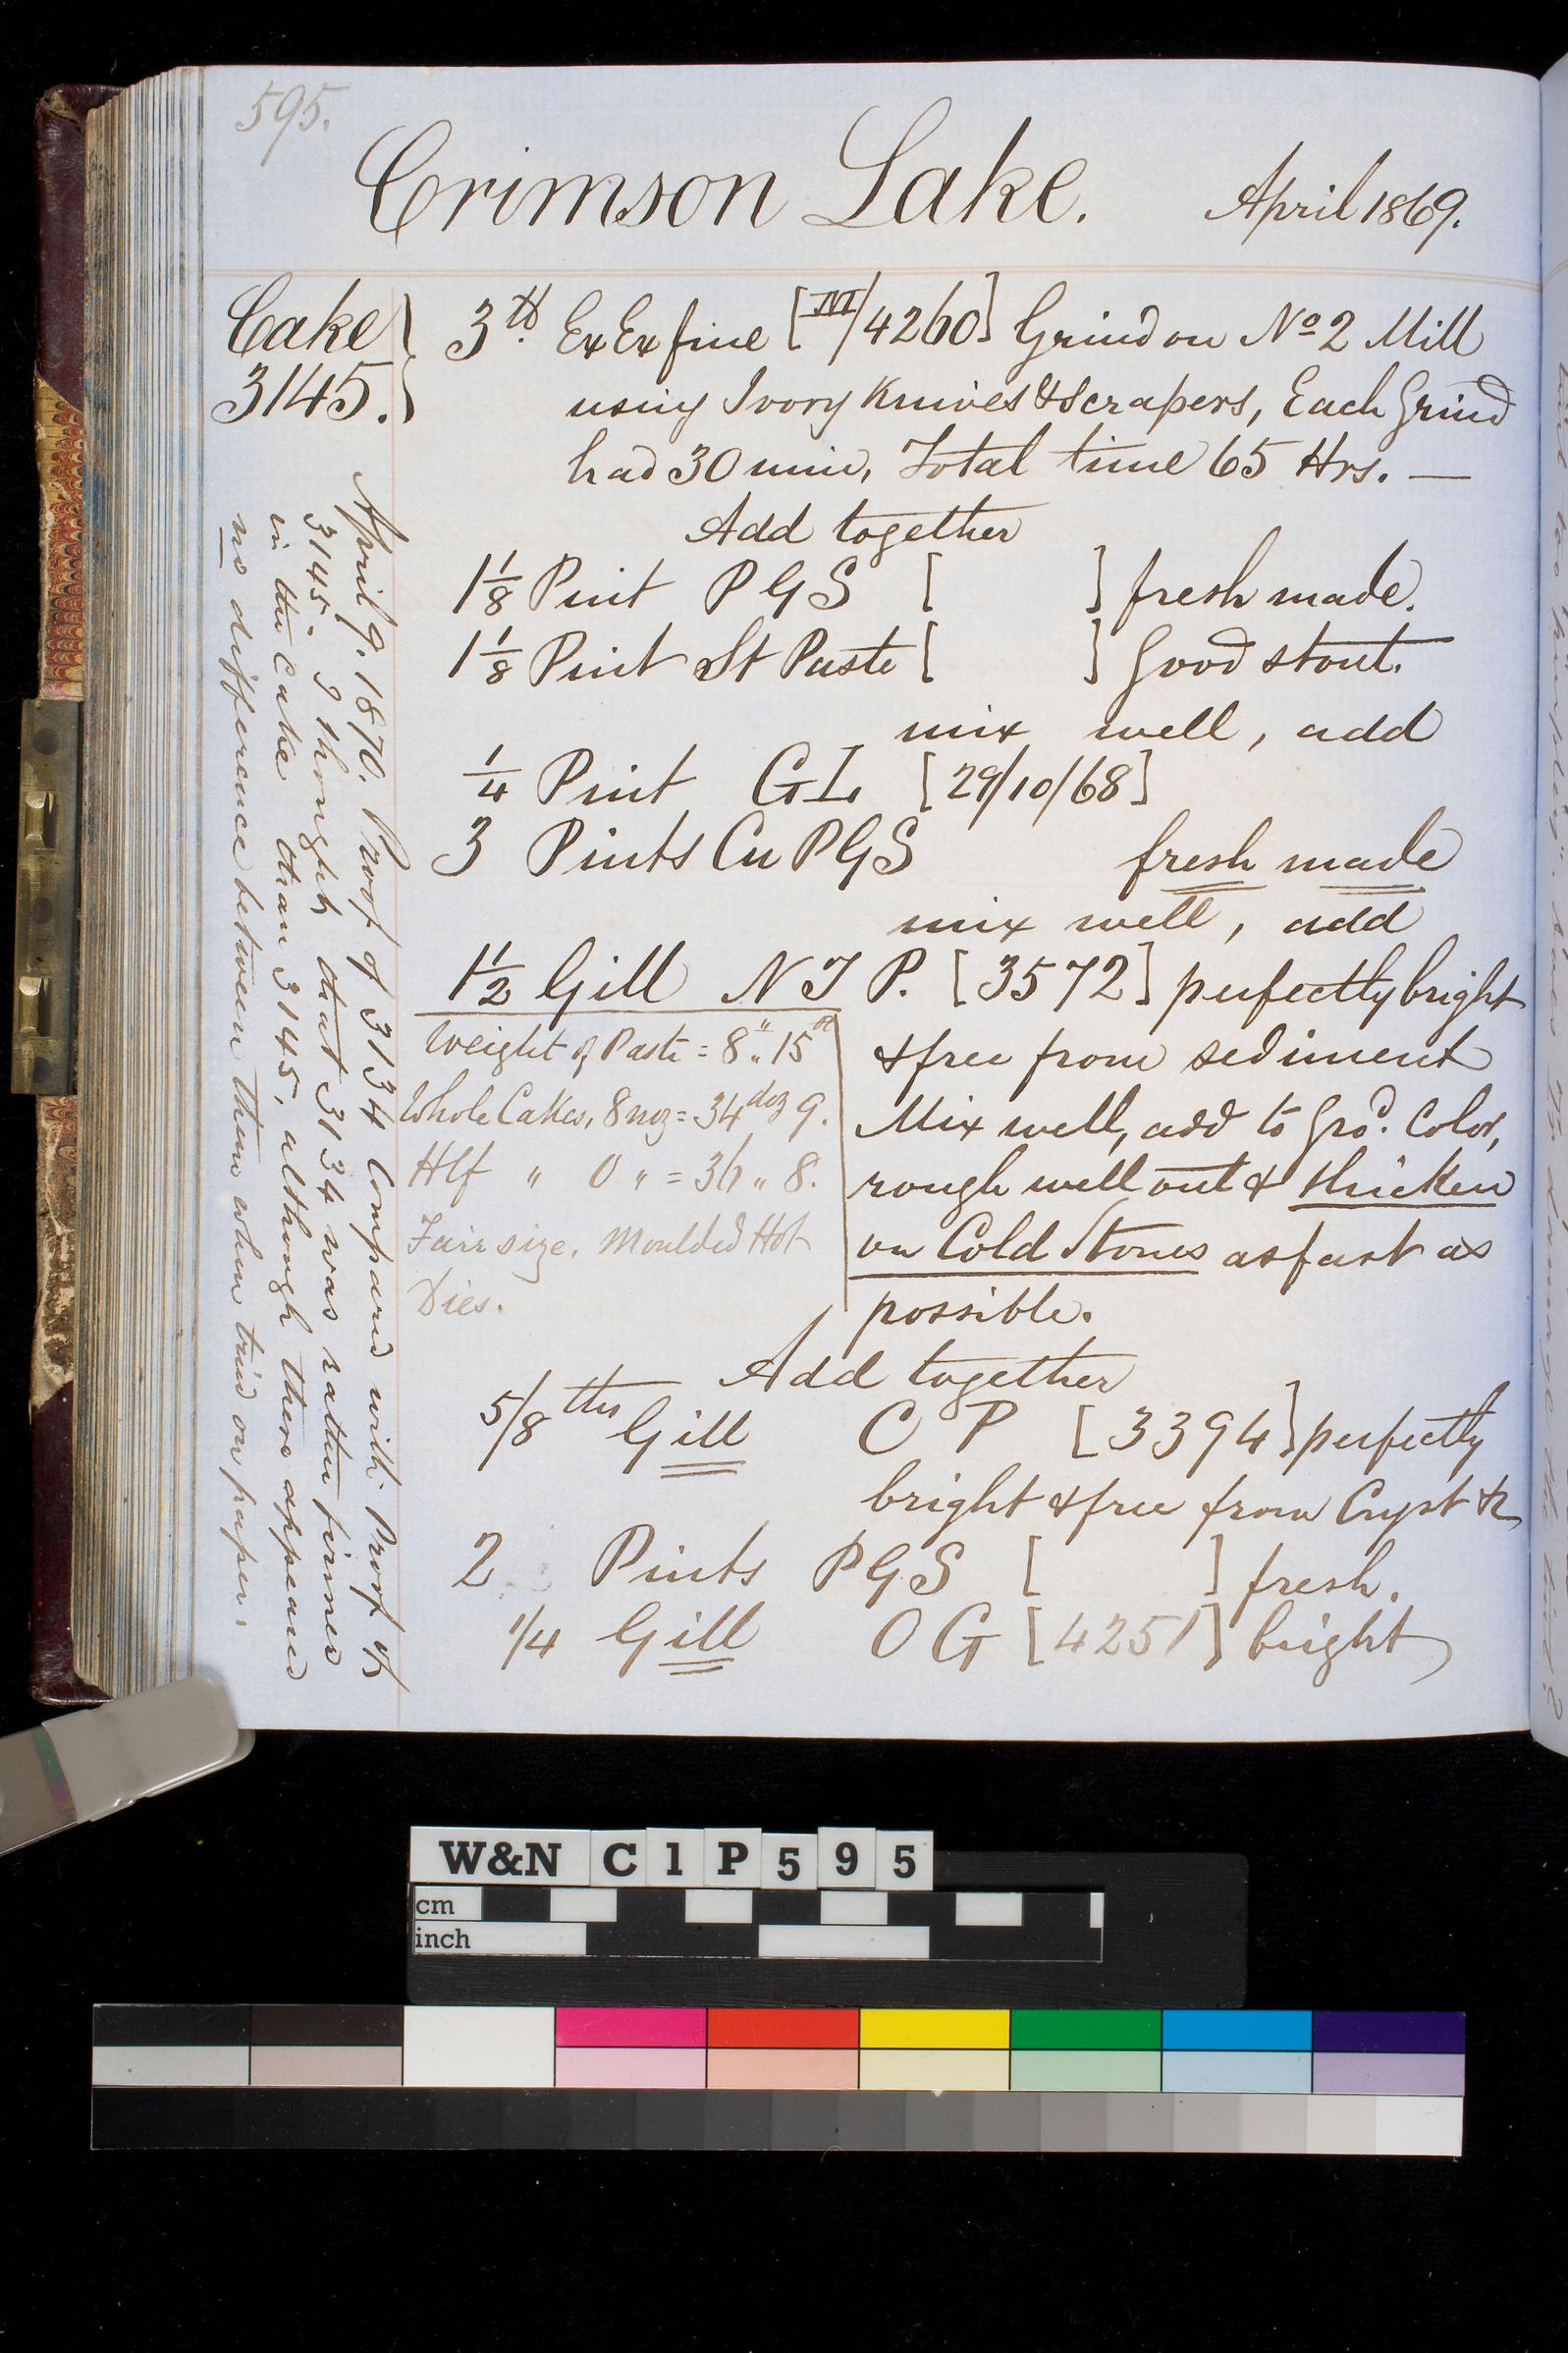 595.
Crimson Lake. April 1869.
Cake 3145.
3 lb. Ex Ex fine [IVI/4260] Grind on No 2 Mill
using Ivory Knives & Scrapers, Each Grind
had 30 min, Total time 65 Hrs. —
Add together
1 1/8 Pint P G S [ ] fresh made.
1 1/8 Pint St Paste [ ] Good stout.
mix well, add
1/4 Pint G L [29/10/68]
3 Pints Cu P G S fresh made
mix well, add
1 1/2 Gill N T P. [3572] perfectly bright
& free from sediment
Mix well, add to Grd. Color,
rough well out & thicken
on Cold Stones as fast as
possible.
Weight of Paste = 8 " 15 oz
Whole Cakes, 8 = 34 doz 9.
Hlf " 0 " = 36 " 8.
Fair size. Moulded Hot
Dies.
Add together
5/8 ths Gill C P [3394] perfectly
bright & free from Cryst &c
2 Pints P G S [ ] fresh.
1/4 Gill O G [4251] bright
April 9. 1870. Proof of 3134 Compared with Proof of
3145. I thought that 3134 was rather firmer
in the Cake than 3145, although there appeared
no difference between them when tried on paper.
W&N C1P595
cm
inch